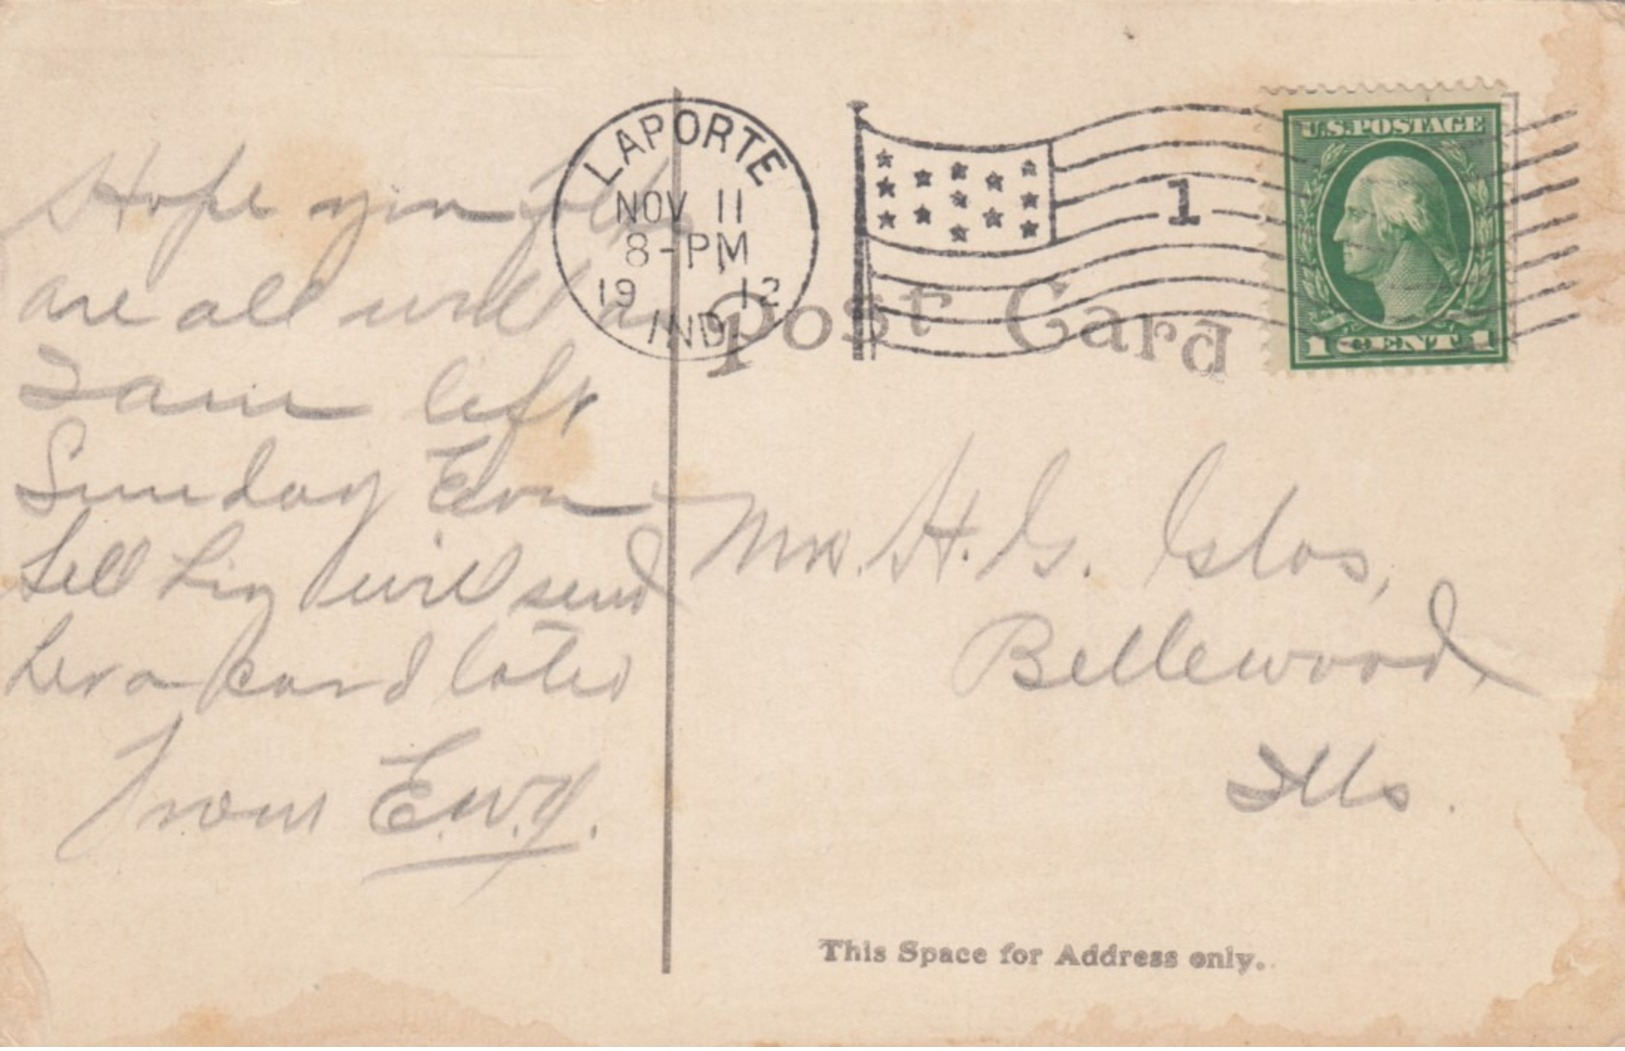 LAPORTE
NOV 11
8-PM
19 12
IND.
1
U.S. POSTAGE
1 CENT 1
Post Card
Hope you folks
are all well as
I am left
Sunday Eve
tell Liz I will send
her a card later
From E.W.Y.
Mrs. H. G. Glos,
Bellewood,
Ills.
This Space for Address only.